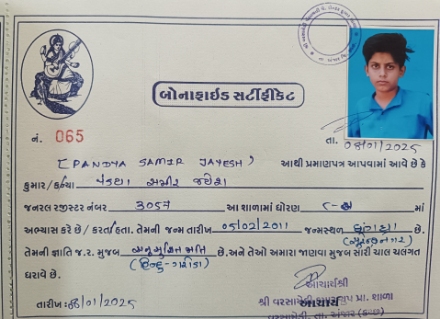 બોનાફાઈડ સર્ટીફીકેટ
નં. 065
તા. 08/01/2025
(PANDYA SAMIR JAYESH) આથી પ્રમાણપત્ર આપવામાં આવે છે કે
કુમાર/કન્યા પંડયા સમીર જયેશ
જનરલ રજીસ્ટર નંબર 3057 આ શાળામાં ધોરણ ૮-અ માં
અભ્યાસ કરે છે / કરતા હતા. તેમની જન્મ તારીખ 05/02/2011 જન્મસ્થળ
તેમની જ્ઞાતિ જ.ર. મુજબ છે.અને તેઓ અમારા જાણવા મુજબ સારી ચાલ ચલગત
ધરાવે છે.
આચાર્યશ્રી
તારીખ: 08/01/2025
શ્રી વરસામેડી પ્રા. શાળા
આચાર્ય
વરસામેડી, તા. અંજાર (કચ્છ)